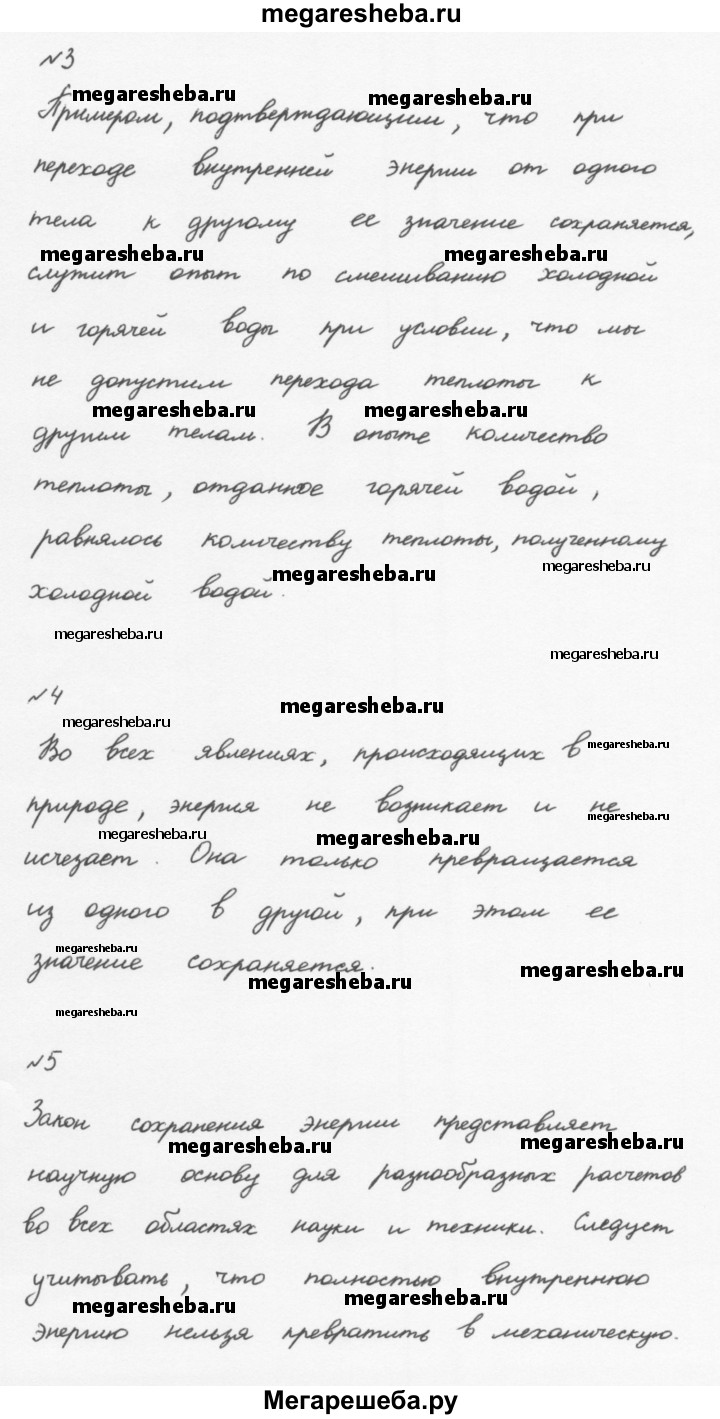 megaresheba.ru
№3
megaresheba.ru megaresheba.ru
Примером, подтверждающим, что при
переходе внутренней энергии от одного
тела к другому ее значение сохраняется,
megaresheba.ru megaresheba.ru
служит опыт по смешиванию холодной
и горячей воды при условии, что мы
не допустим перехода теплоты к
megaresheba.ru megaresheba.ru
другим телам. В опыте количество
теплоты, отданное горячей водой,
равнялось количеству теплоты, полученному
megaresheba.ru megaresheba.ru
холодной водой.
megaresheba.ru
megaresheba.ru
№4
megaresheba.ru
megaresheba.ru
Во всех явлениях, происходящих в
megaresheba.ru
природе, энергия не возникает и не
megaresheba.ru
megaresheba.ru megaresheba.ru
исчезает. Она только превращается
из одного в другой, при этом ее
megaresheba.ru
значение сохраняется.
megaresheba.ru megaresheba.ru
megaresheba.ru
№5
Закон сохранения энергии представляет
megaresheba.ru megaresheba.ru
научную основу для разнообразных расчетов
во всех областях науки и техники. Следует
учитывать, что полностью внутреннюю
megaresheba.ru megaresheba.ru
энергию нельзя превратить в механическую.
Мегарешеба.ру